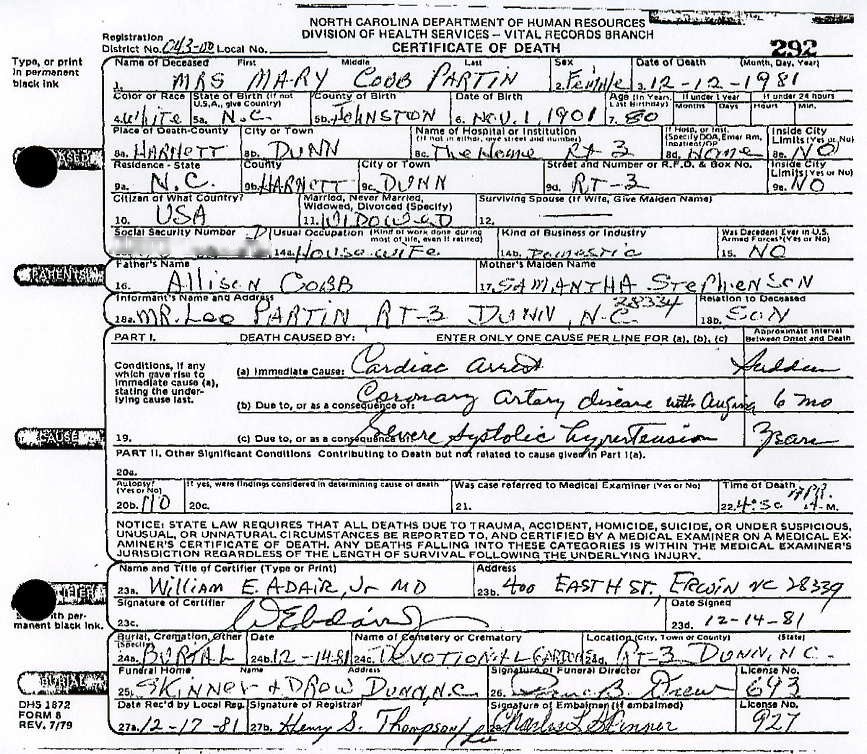 NORTH CAROLINA DEPARTMENT OF HUMAN RESOURCES
DIVISION OF HEALTH SERVICES – VITAL RECORDS BRANCH
CERTIFICATE OF DEATH
292
Registration District No. 043-00 Local No.
Type, or print in permanent black ink
Name of Deceased First Middle Last Sex Date of Death (Month, Day, Year)
1. MRS MARY COBB PARTIN 2. Female 3. 12-12-1981
Color or Race State of Birth (If not U.S.A., give Country) County of Birth Date of Birth Age (In Years, Last Birthday) If under 1 year If under 24 hours
Months Days Hours Min.
4. White 5a. N.C. 5b. JOHNSTON 6. NOV. 1, 1901 7. 80
Place of Death-County City or Town Name of Hospital or Institution (If not in either, give street and number) If Hosp. or Inst. (Specify DOA, Emer Rm, Inpatient/OP Inside City Limits (Yes or No)
8a. HARNETT 8b. DUNN 8c. The Home RT-3 8d. Home 8e. NO
Residence - State County City or Town Street and Number or R.F.D. & Box No. Inside City Limits (Yes or No)
9a. N.C. 9b. HARNETT 9c. DUNN 9d. RT-3 9e. NO
Citizen of What Country? Married, Never Married, Widowed, Divorced (Specify) Surviving Spouse (If Wife, Give Maiden Name)
10. USA 11. WIDOWED 12.
Social Security Number D Usual Occupation (Kind of work done during most of life, even if retired) Kind of Business or Industry Was Decedent Ever in U.S. Armed Forces? (Yes or No)
14a. Housewife 14b. Domestic 15. NO
PARENTS
Father's Name Mother's Maiden Name
16. Allison COBB 17. SAMANTHA Stephenson
Informant's Name and Address Relation to Deceased
18a. MR. Leo PARTIN RT-3 DUNN, N.C. 28334 18b. SON
PART I. DEATH CAUSED BY: ENTER ONLY ONE CAUSE PER LINE FOR (a), (b), (c) Approximate Interval Between Onset and Death
Conditions, if any which gave rise to immediate cause (a), stating the underlying cause last.
(a) Immediate Cause: Cardiac Arrest Sudden
(b) Due to, or as a consequence of: Coronary artery disease with 6 mo
CAUSE
19. (c) Due to, or as a consequence Severe Systolic hypertension Years
PART II. Other Significant Conditions Contributing to Death but not related to cause given in Part I(a).
20a.
Autopsy? (Yes or No) If yes, were findings considered in determining cause of death Was case referred to Medical Examiner (Yes or No) Time of Death
20b. NO 20c. 21. 22. M.
NOTICE: STATE LAW REQUIRES THAT ALL DEATHS DUE TO TRAUMA, ACCIDENT, HOMICIDE, SUICIDE, OR UNDER SUSPICIOUS,
UNUSUAL, OR UNNATURAL CIRCUMSTANCES BE REPORTED TO, AND CERTIFIED BY A MEDICAL EXAMINER ON A MEDICAL EX-
AMINER'S CERTIFICATE OF DEATH. ANY DEATHS FALLING INTO THESE CATEGORIES IS WITHIN THE MEDICAL EXAMINER'S
JURISDICTION REGARDLESS OF THE LENGTH OF SURVIVAL FOLLOWING THE UNDERLYING INJURY.
Name and Title of Certifier (Type or Print) Address
23a. William E. ADAIR, Jr MD 23b. 400 EAST H ST., ERWIN NC 28339
Signature of Certifier Date Signed
23c. 23d. 12-14-81
manent black ink.
Burial, Cremation, Other (Specify) Date Name of Cemetery or Crematory Location (City, Town or County) (State)
24a. BURIAL 24b. 12-14-81 24c. DEVOTIONAL GARDENS 24d. RT-3 DUNN, N.C.
BURIAL
Funeral Home Address Signature of Funeral Director License No.
25. SKINNER & DREW DUNN, N.C. 26. B. Drew 643
DHS 1872
FORM 8
REV. 7/79
Date Rec'd by Local Reg. Signature of Registrar Signature of Embalmer (if embalmed) License No.
27a. 12-17-81 27b. Henry S. Thompson Charles L. Skinner 927